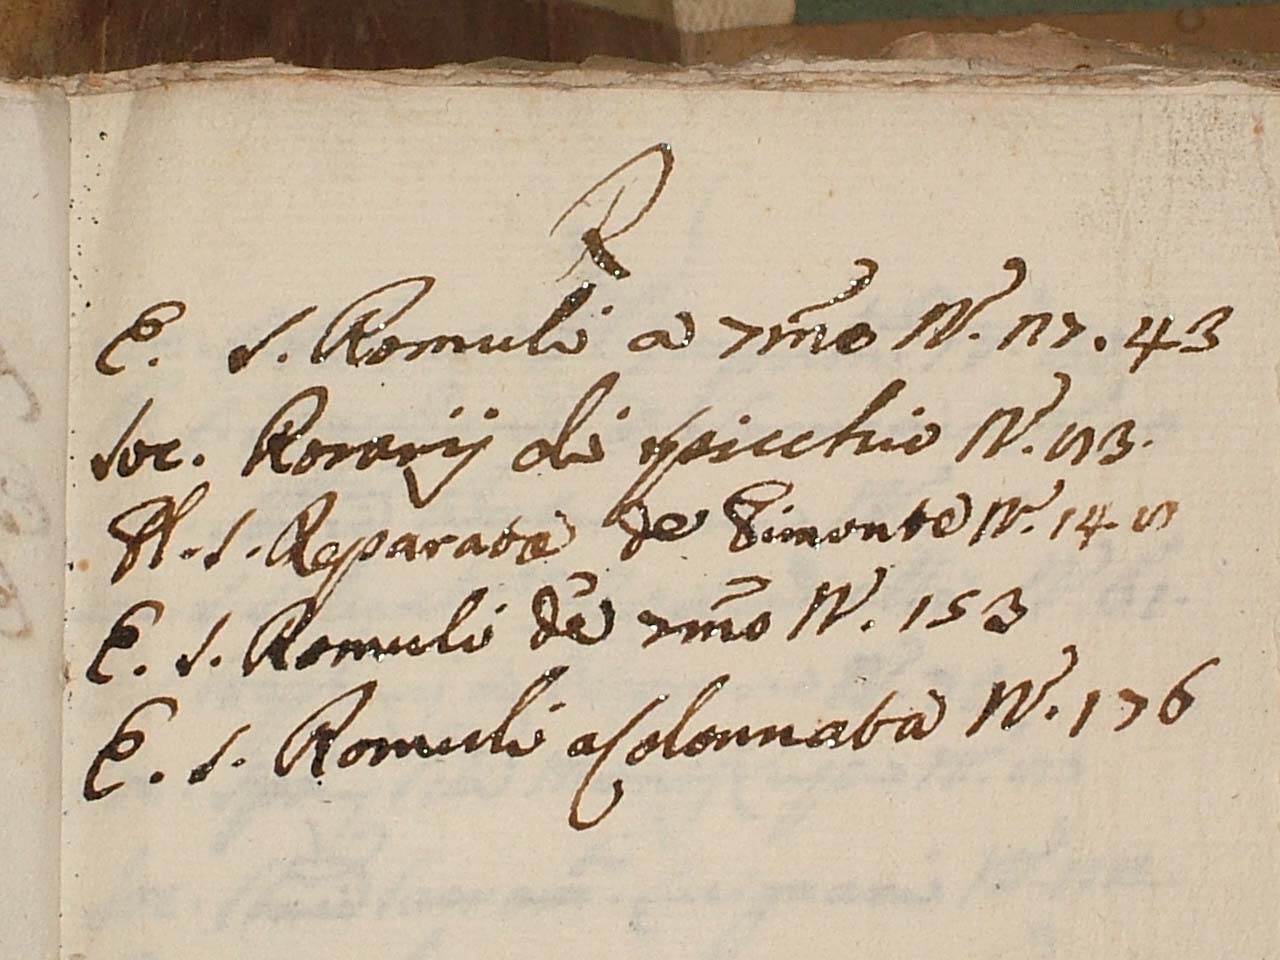 R
E. S. Romuli a 7mo N. 117. 43
Soc. Rosarij di Spicchio N. 113.
Pl. S. Reparata de Pimonte N. 140
E. S. Romuli de 7mo N. 153
E. S. Romuli a Colonnata N. 176